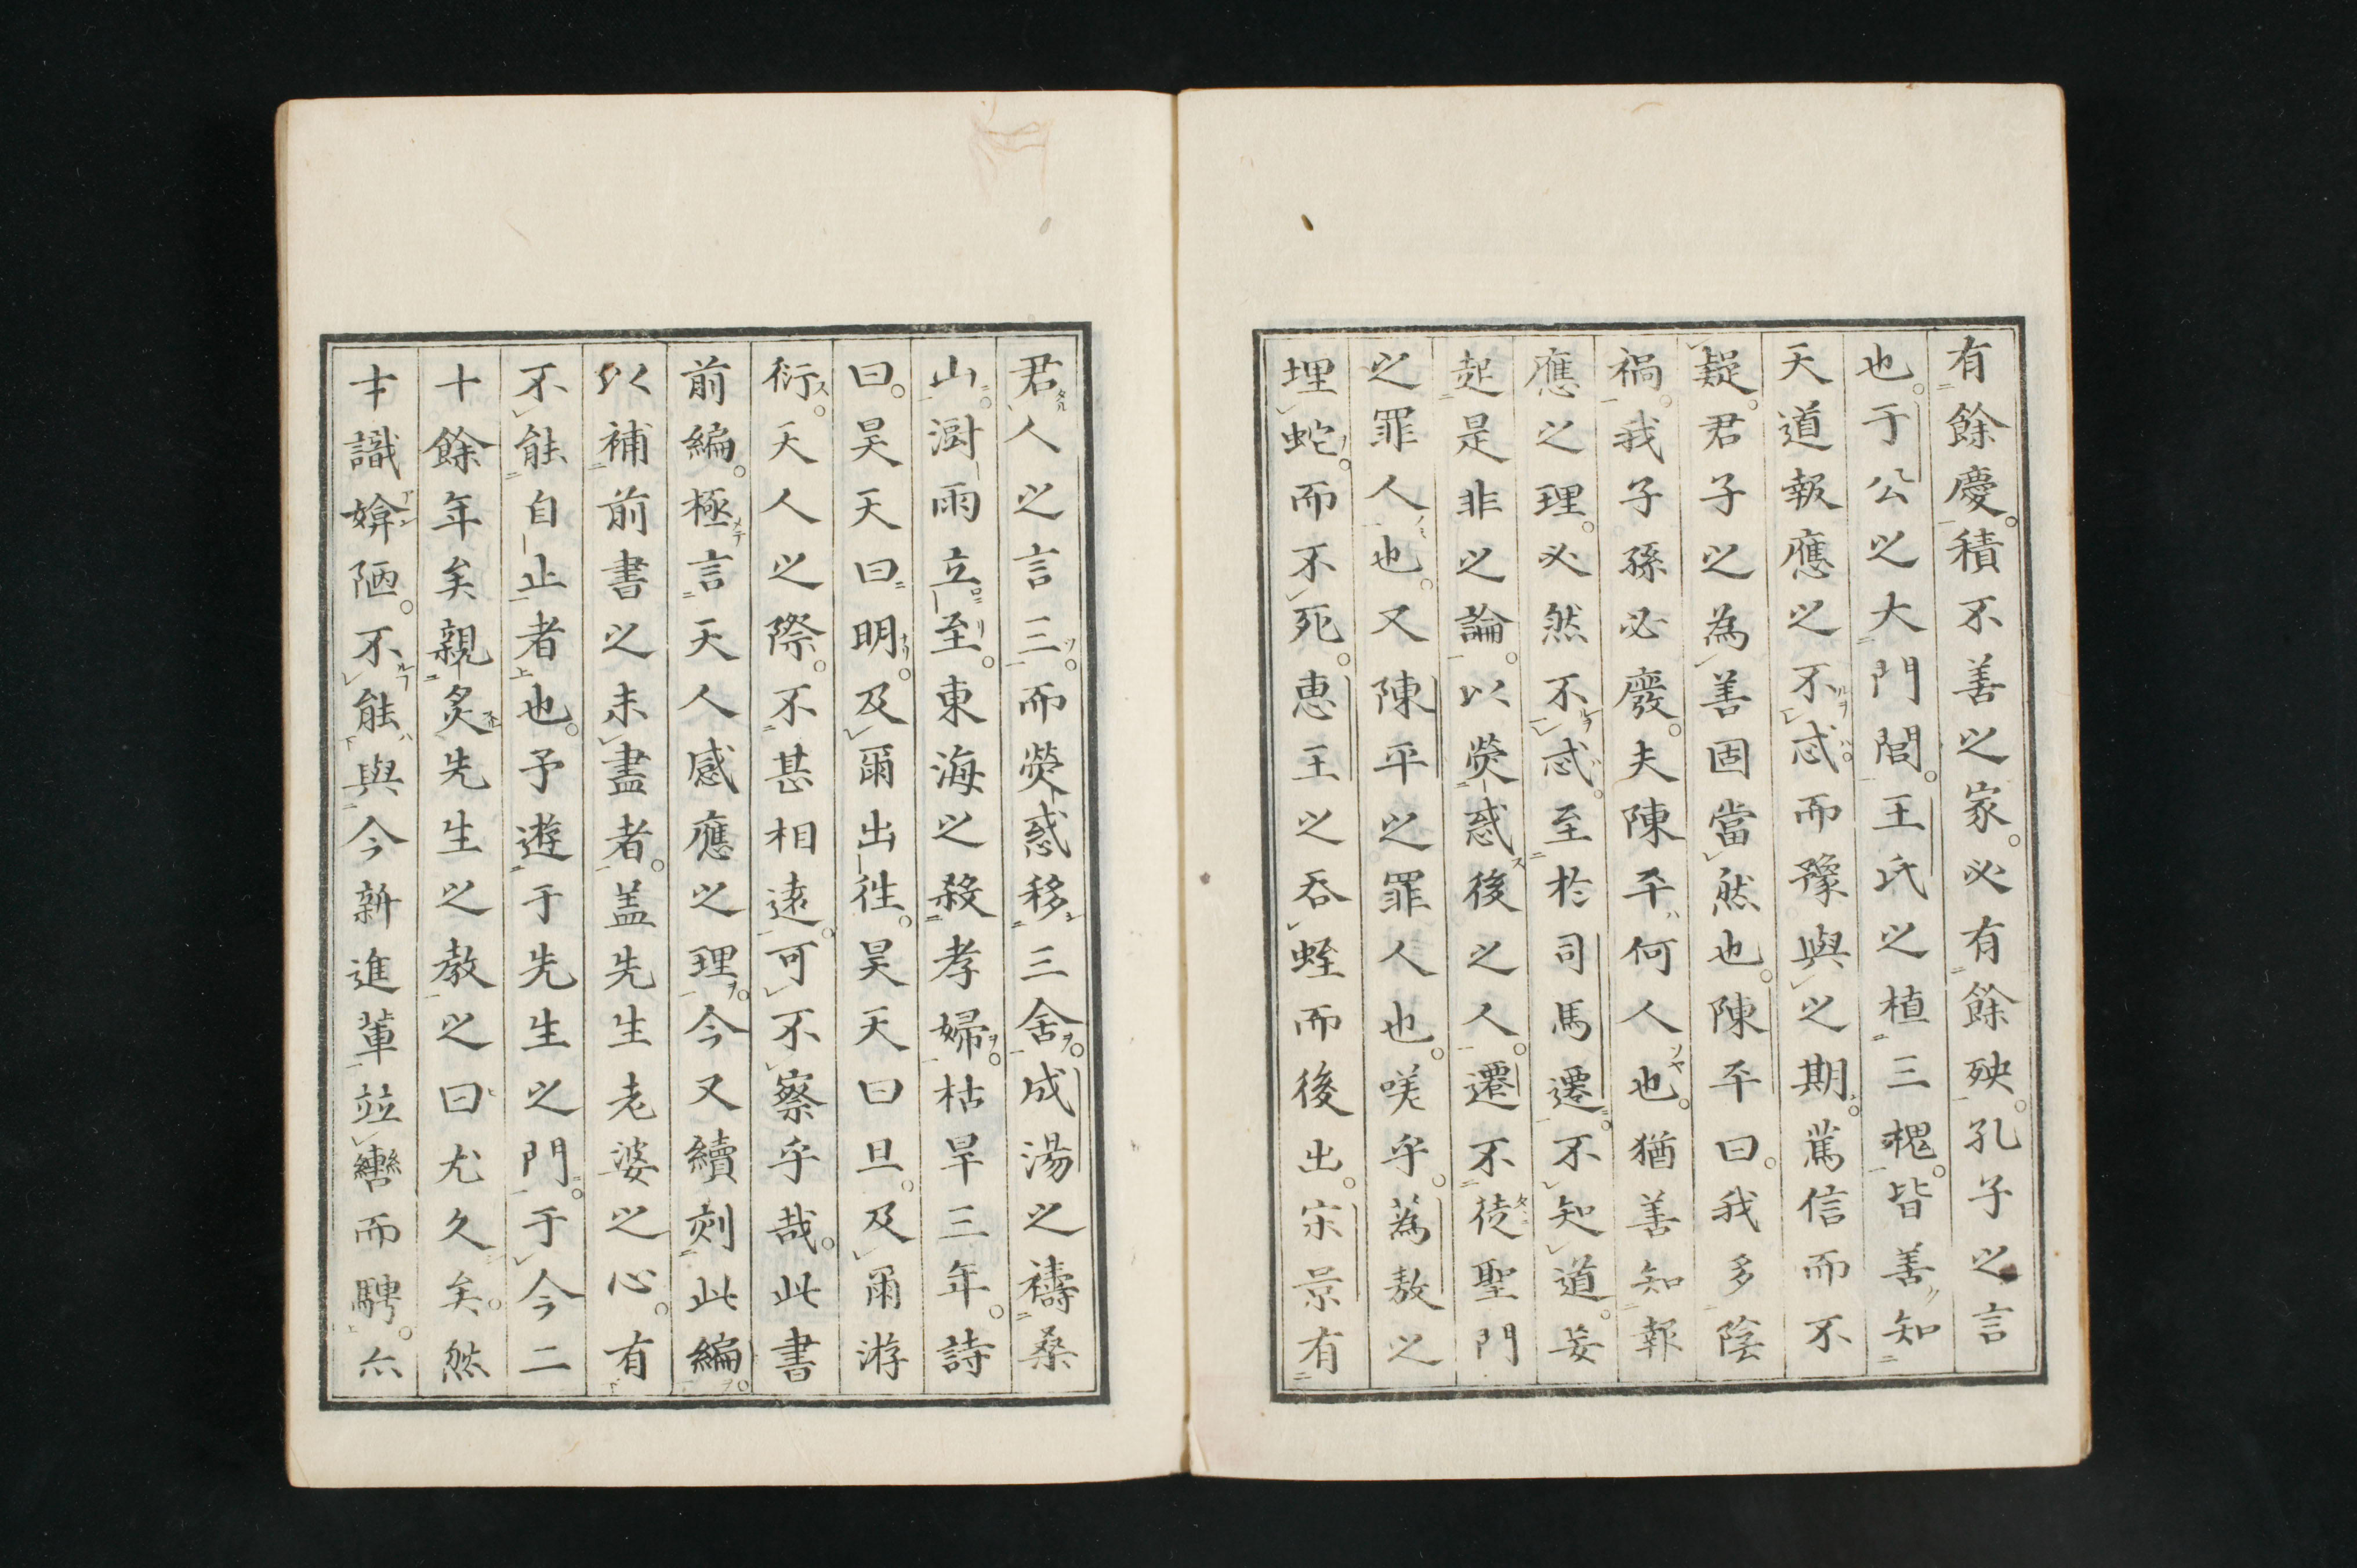 有餘慶。積不善之家。必有餘殃。孔子之言
也。于公之大門閭。王氏之植三槐。皆善知
天道報應之不忒。而豫與之期。篤信而不
疑。君子之為善固當然也。陳平曰。我多陰
禍。我子孫必廢。夫陳平何人也。猶善知報
應之理。必然不忒。至於司馬遷。不知道。妄
起是非之論。以熒惑後之人。遷不徒聖門
之罪人也。又陳平之罪人也。咲乎。蒍敖之
埋蛇。而不死。惠王之吞蛭而後出。宋景有
君人之言三。而熒惑移三舍。成湯之禱桑
山。澍雨立至。東海之殺孝婦。枯旱三年。詩
曰。昊天曰明。及爾出徃。昊天曰旦。及爾游
衍。天人之際。不甚相遠。可不察乎哉。此書
前編。極言天人感應之理。今又續刻此編。
以補前書之未盡者。盖先生老婆之心。有
不能自止者也。予遊于先生之門。于今二
十餘年矣親炙先生之教之曰尤久矣。然
才識媕陋。不能與今新進輩竝轡而騁。亦